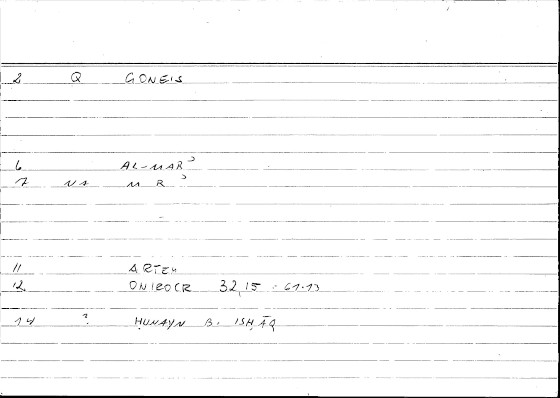 2 Q GONEIS
6 AL-MARʾ
7 NA M R ʾ
11 ARTEM
12 ONIROCR 32,15 - 61.13
14 ? ḤUNAYN B. ISḤĀQ